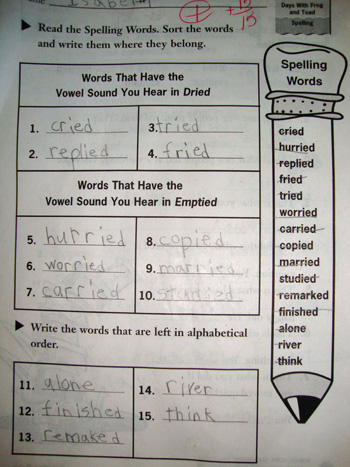 Isabel
+15
15
Days With Frog
and Toad
Spelling
Read the Spelling Words. Sort the words
and write them where they belong.
Words That Have the
Vowel Sound You Hear in Dried
1. cried
2. replied
3. tried
4. fried
Words That Have the
Vowel Sound You Hear in Emptied
5. hurried
6. worried
7. carried
8. copied
9. married
10. studied
Write the words that are left in alphabetical
order.
11. alone
12. finished
13. remaked
14. river
15. think
Spelling
Words
cried
hurried
replied
fried
tried
worried
carried
copied
married
studied
remarked
finished
alone
river
think